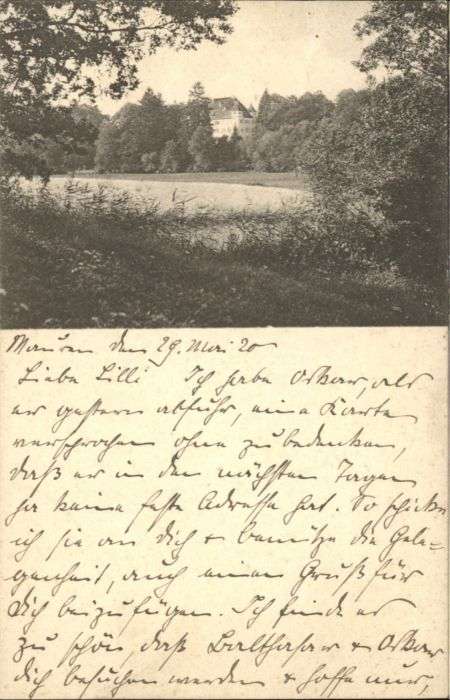 Mauren den 29. Mai 20
Liebe Lilli Ich habe Oskar, als
er gestern abfuhr, eine Karte
versprochen ohne zu bedenken,
daß er in den nächsten Tagen
ja keine feste Adresse hat. So schicke
ich sie an Dich & benütze die Gele=
genheit, auch einen Gruß für
Dich beizufügen. Ich finde es
zu schön, daß Balthasar & Oskar
Dich besuchen werden & hoffe nur,